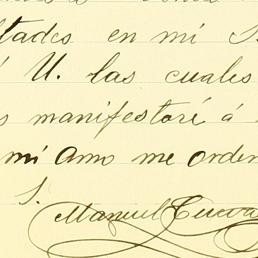 ltades en mi S
U. las cuales
s manifestaré á
mi Amo me orden
S.
Manuel Cueva